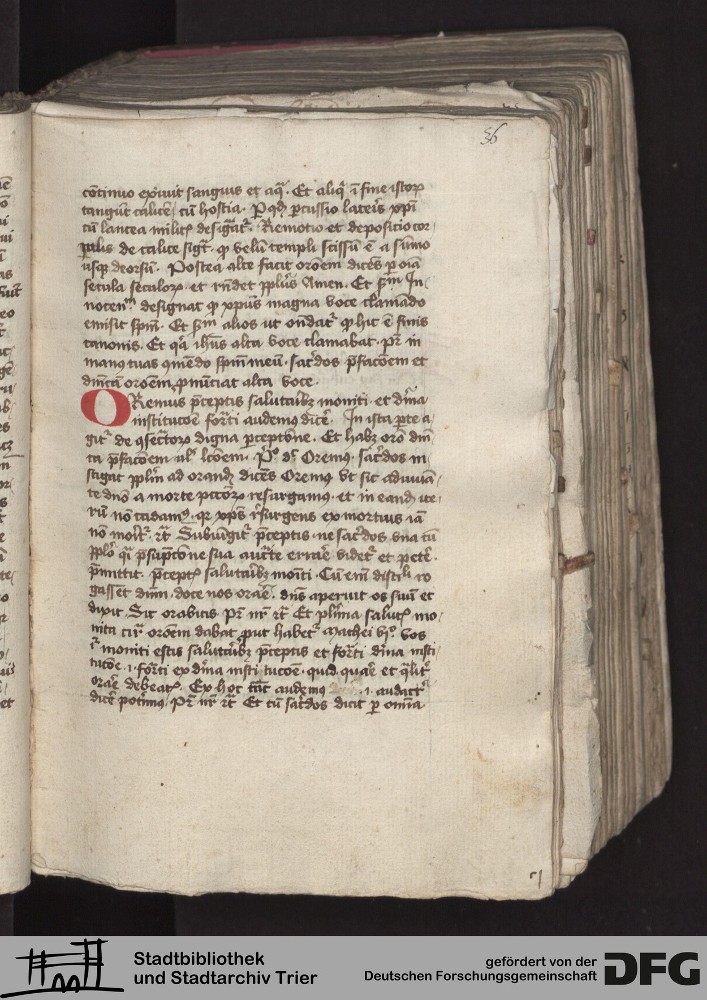 36
cōtinuo exivit sanguis et aq̄. Et aliq̄ ī fine istoꝝ
tangūt calicē cū hostia. ꝑcussio lateris xp̄i
cū lancea militꝭ desiḡtᷣ. Remotio et deposicio cor
ꝑalis de calice sigᷣt. ꝙ velū templi scissū ē a sūmo
usqꝫ deorsū. Postea alte facit orōem dicēs ꝑ oīa
secula seculoꝝ. et rn̄det pplūs Amen. Et scd̄m In
nocen designat ꝙ xpūs magna voce clamādo
emisit spm̄. Et scd̄m alios ut on̄datᷣ ꝙ hic ē finis
canonis. Et qꝛ ihūs alta voce clamabat. pr̄ in
manꝰ tuas ꝯmēdo spm̄ meū. sac̄dos p̄facōem et
dn̄icā orōem ꝓnūciat alta voce.
ORemus p̄ceptis salutaribꝫ moniti. et dīna
institucōe formati audemꝰ dicē. In ista ꝑte a
gitᷣ de ꝯsecᷣtoꝝ digna ꝑceptōne. Et habꝫ orō dn̄i
ca p̄facōem. Oremꝰ. sac̄dos in
stigat pplm̄ ad orandꝫ dicēs Oremꝰ ut sic adiuuā
te dn̄o a morte pcc̄oꝝ resurgamꝰ. et in eandē ite
rū nō cadamꝰ. qꝛ xp̄s resurgens ex mortuis iā
nō moritᷣ. ⁊c̄ Subiūgitᷣ p̄ceptis. ne sac̄dos vna cū
pplō p̄sūpcōne sua errare videtᷣ et petē.
p̄mittit. p̄ceptꝭ salutaribꝫ moniti. Cū em̄ discꝉi ro
gassēt dūm. doce nos orare. dn̄s aperuit os suū et
dixit. Sic orabitis. Pr̄ nr̄ ⁊c̄ Et plīma salutꝭ mo
nita circa orōem dabat. ꝓut habetᷣ mathei vi. vos
moniti estis salutaribꝫ p̄ceptis et formati dīna insti
tucōe .i. formati ex dīna institucōe. quid quārē et qualitᷣ
orare debeatꝭ. Ex hoc tūc audemꝰ .i. audactᷣ
dicē possumꝰ. Pr̄ nr̄ ⁊c̄ Et cū sac̄dos dicit ꝑ omnia
Stadtbibliothek
und Stadtarchiv Trier
gefördert von der
Deutschen Forschungsgemeinschaft
DFG